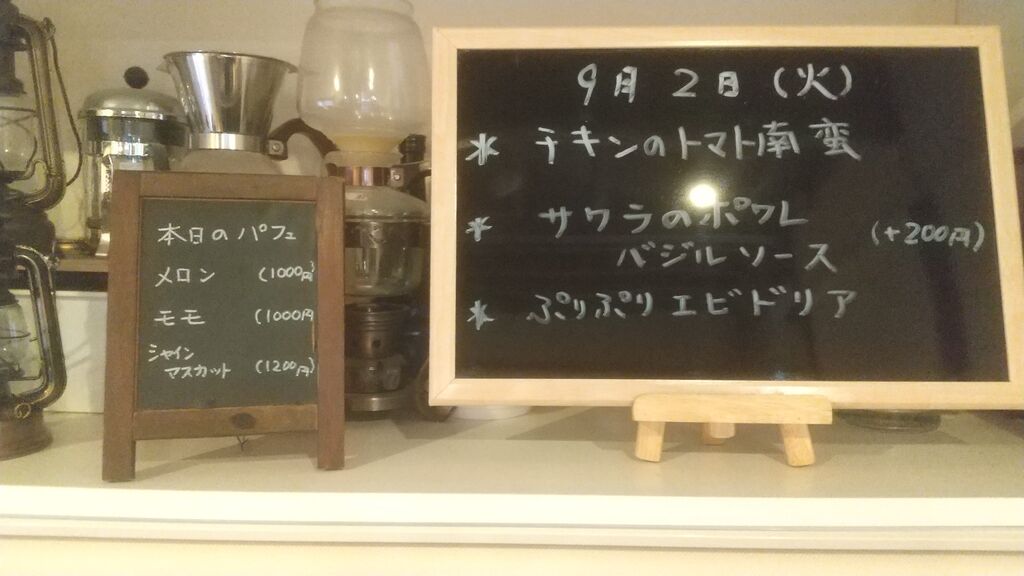 本日のパフェ
メロン (1000円)
モモ (1000円
シャイン
マスカット (1200円)
9月2日(火)
* チキンのトマト南蛮
* サワラのポワレ
バジルソース (+200円)
* ぷりぷりエビドリア